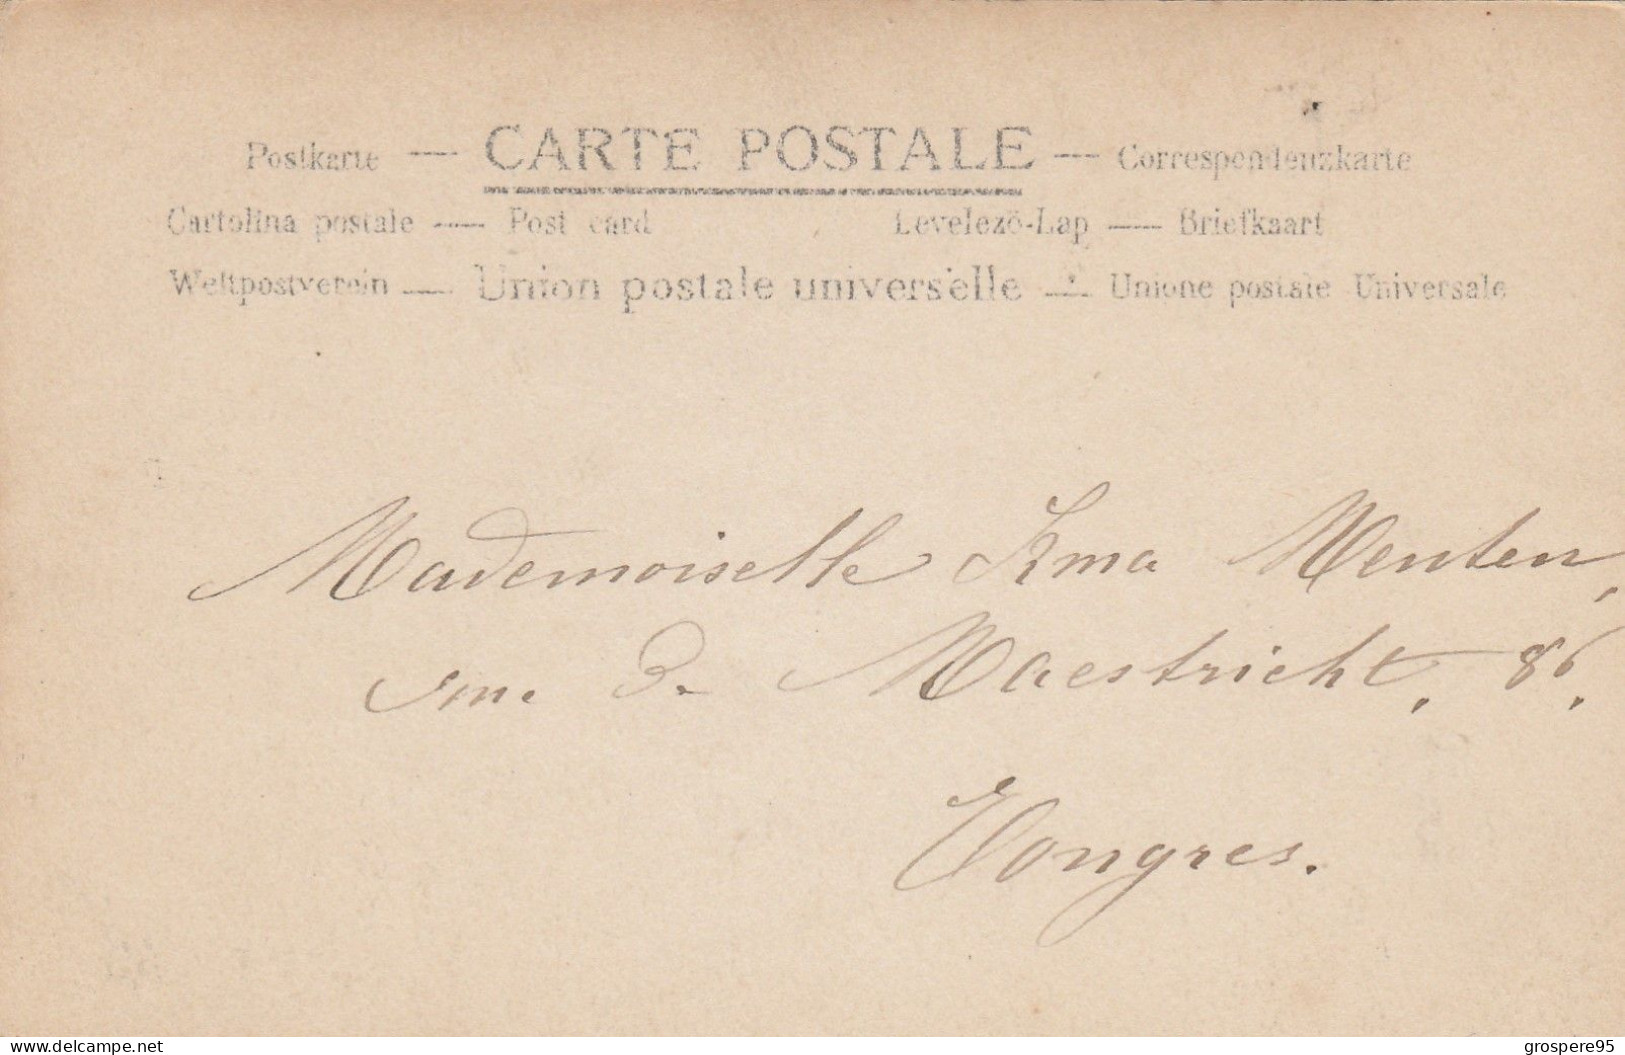 Postkarte — CARTE POSTALE — Correspondenzkarte
Cartolina postale — Post card Levelezö-Lap — Briefkaart
Weltpostverein — Union postale universelle — Unione postale Universale
Mademoiselle Irma Menten,
rue de Maestricht, 86.
Tongres.
www.delcampe.net
grospere95